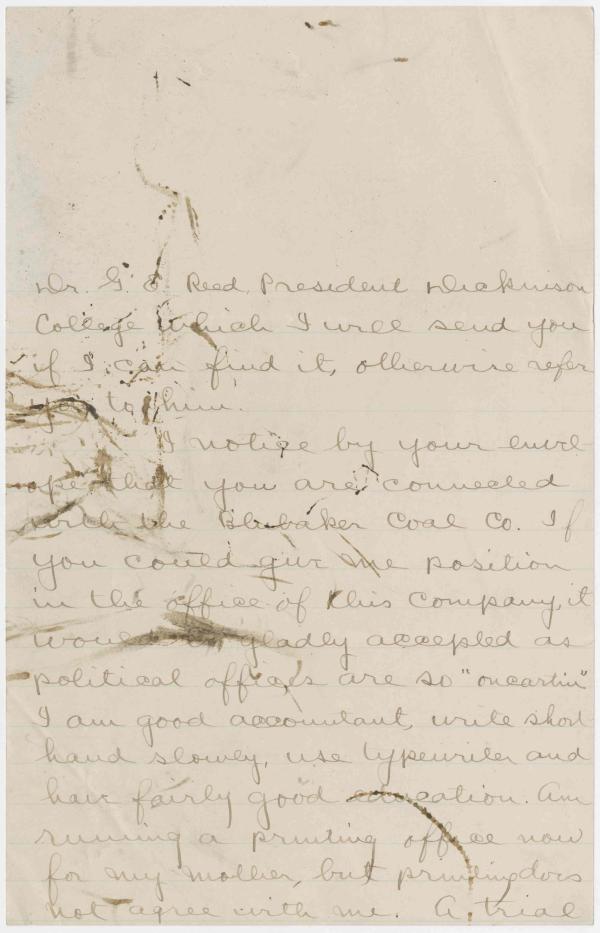 Dr. G. E. Reed, President Dickinson
College which I will send you
if I can find it, otherwise refer
you to him.
I notice by your envel-
ope that you are connected
with the Blubaker Coal Co. If
you could give me position
in the office of this Company, it
would be gladly accepted as
political offices are so "oncartin"
I am good accountant, write short
hand slowly, use typewriter and
have fairly good education. Am
running a printing office now
for my mother, but printing does
not agree with me. A trial